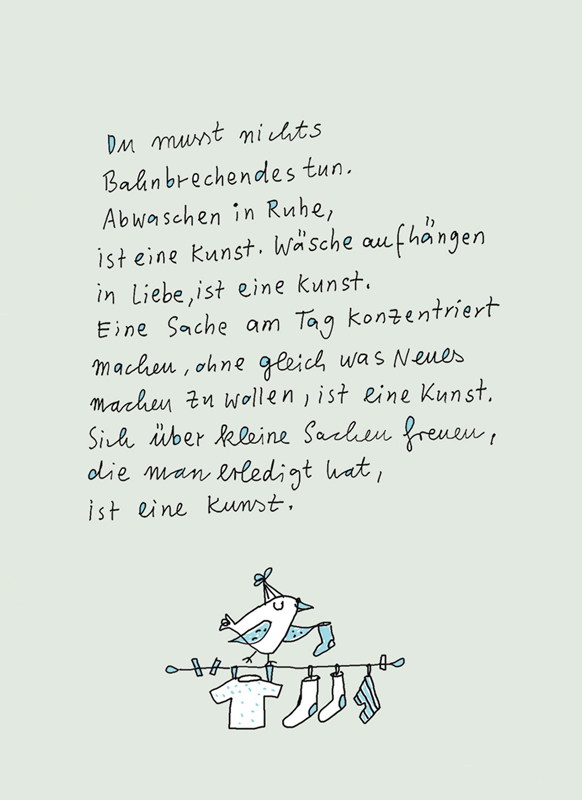 Du musst nichts
Bahnbrechendes tun.
Abwaschen in Ruhe,
ist eine Kunst. Wäsche aufhängen
in Liebe, ist eine Kunst.
Eine Sache am Tag konzentriert
machen, ohne gleich was Neues
machen zu wollen, ist eine Kunst.
Sich über kleine Sachen freuen,
die man erledigt hat,
ist eine Kunst.